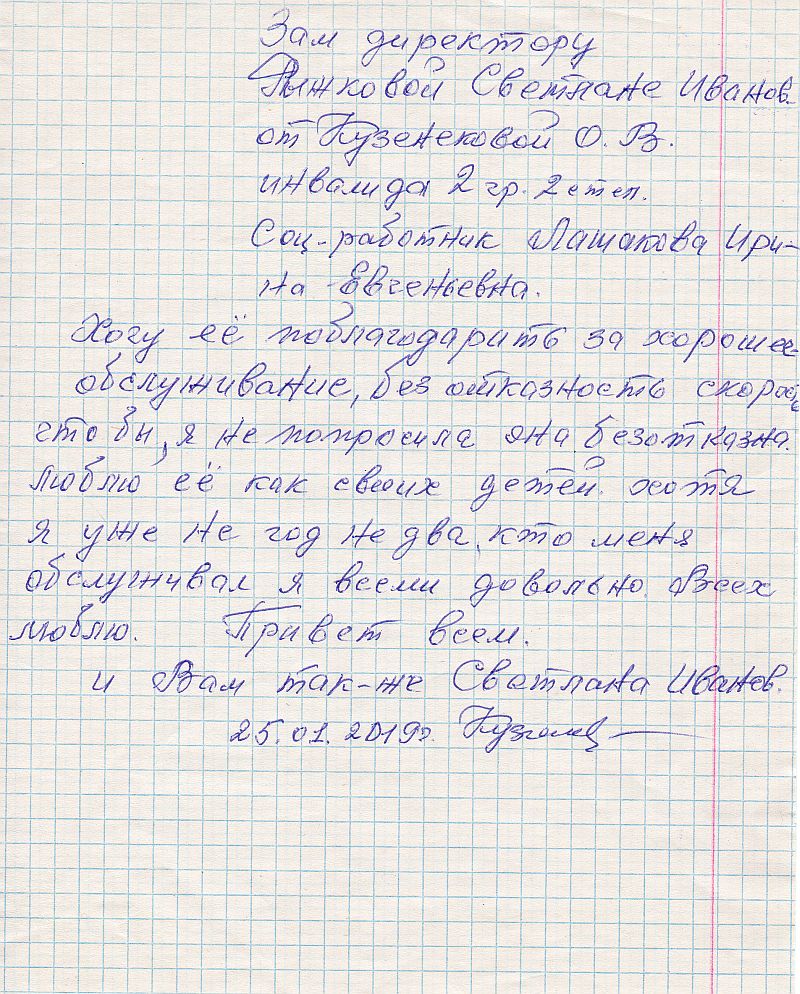 Зам директору
Рыжковой Светлане Иванов.
от Кузенековой О. В.
инвалида 2 гр. 2 степ.
Соц-работник Лашакова Ири-
на Евгеньевна.
Хочу её поблагодарить за хорошее
обслуживание, без отказность скорость
что бы, я не попросила она безотказна.
Люблю её как своих детей. хотя
я уже не год не два, кто меня
обслуживал я всеми довольно. Всех
люблю. Привет всем.
и Вам так-же Светлана Иванов.
25.01.2019г.